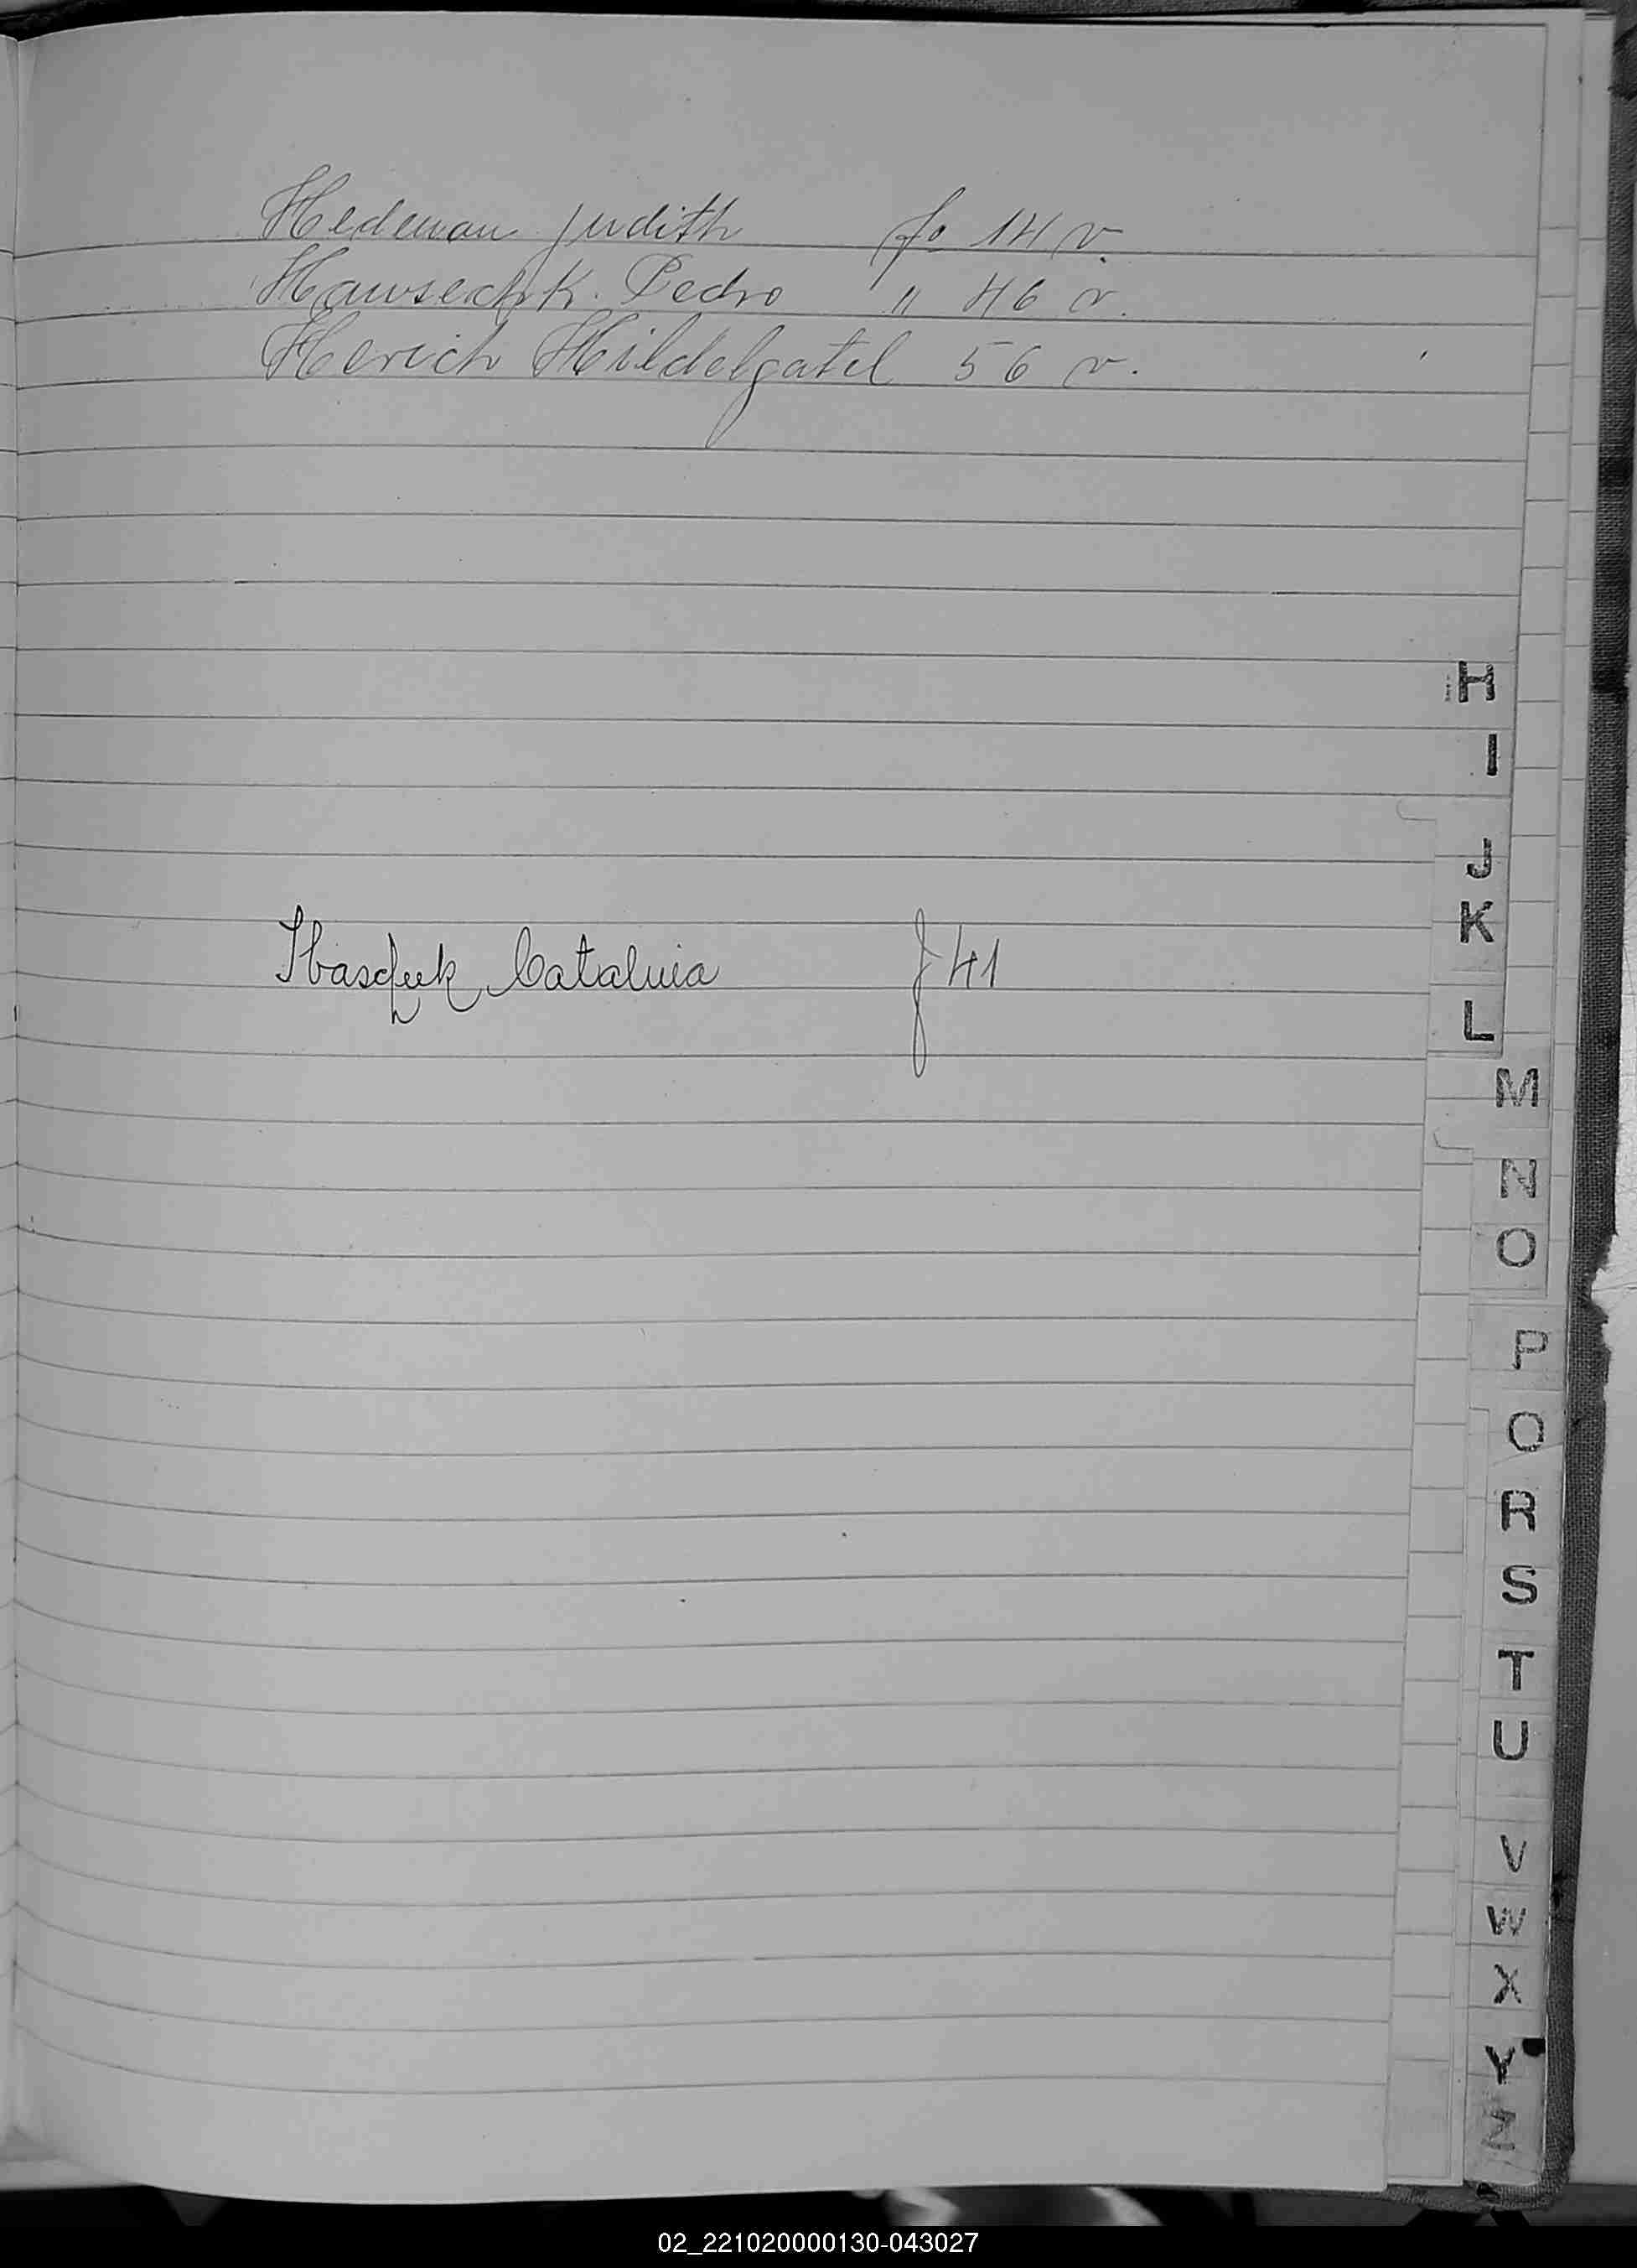 Hedeman Judith fo 14 v.
Hawsechk. Pedro " 46 v.
Herich Hildelgatel 56 v.
Catalina f 41
H
I
J
K
L
M
N
O
P
Q
R
S
T
U
V
W
X
Y
Z
02_221020000130-043027